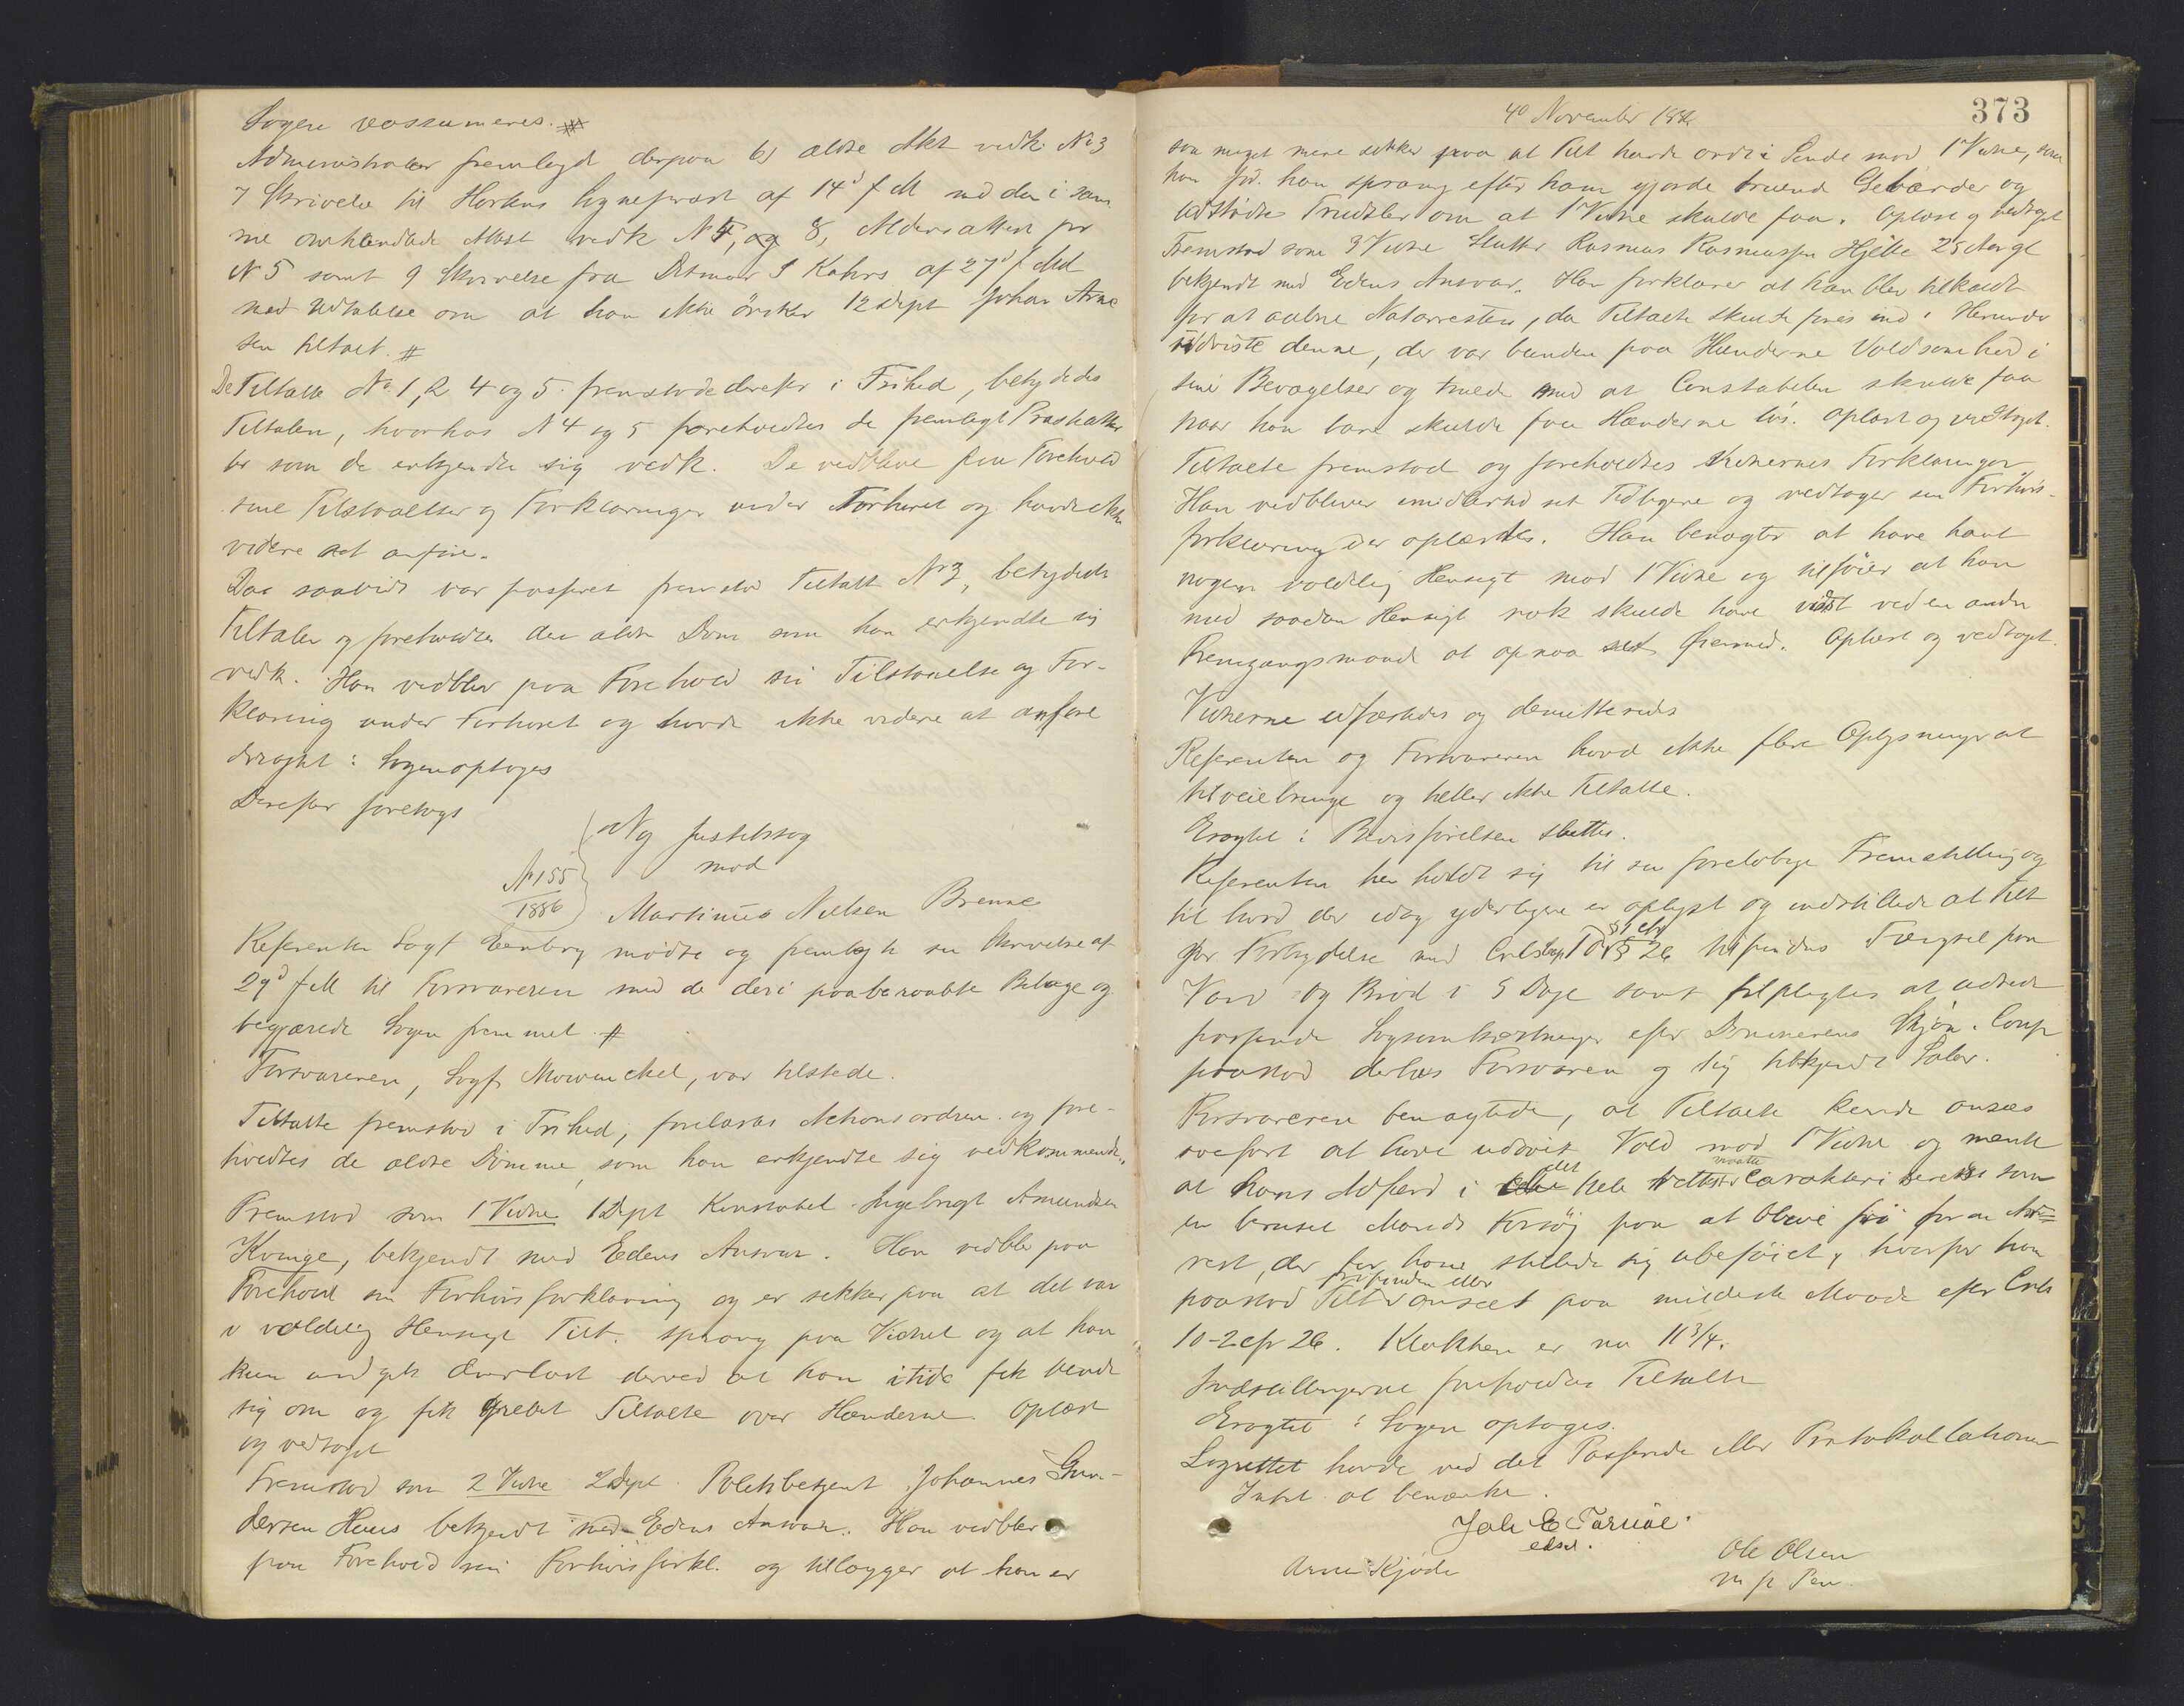 Sagen reassumeres. #
Administrator fremlagde derpaa 6) ældre Akt vedk. No 3
7 Skrivelse til Hortens Sogneprest af 14d f M med den i sam
me omhandlede Attest vedk N 4, og 8, Aldersattest for
N 5 samt 9 Skrivelse fra Ditmar S Kahrs af 27d f Md
med Udtalelse om at han ikke ønsker 12 Dept Johan Arne
sen tiltalt. #
De Tiltalte No 1, 2 4 og 5 fremstode derefter i Frihed, betydedes
Tiltalen, hvorhos N 4 og 5 foreholdtes de fremlagte Presteattes
ter som de erkjendte sig vedk. De vedbleve paa Forehold
sine Tilstaaelser og Forklaringer under Forhøret og havde ikke
videre at anføre.
Da saavidt var passeret fremstod Tiltalt No 3, betydedes
Tiltalen og foreholdtes den ældre Dom som han erkjendte sig
vedk. Han vedblev paa Forehold sin Tilstaaelse og For-
klaring under Forhøret og havde ikke videre at anføre
Eragtet: Sagen optages
Derefter foretoges
Ny Justitssag
mod
No 155
1886
Martinus Nielsen Brenne
Referenten Sagf mødte og fremlagde sin Skrivelse af
29d f M til Forsvareren med de deri paaberaabte Bilage og
begjærede Sagen fremmet. #
Forsvareren, Sagf. Mowinckel, var tilstede.
Tiltalte fremstod i Frihed, forelæstes Aktionsordren og fore-
holdtes de ældre Domme, som han erkjendte sig vedkommende.
Fremstod som 1 Vidne 1 Dept Konstabel Ingebrigt Amundsen
Kvinge, bekjendt med Edens Ansvar. Han vedblev paa
Forehold sin Forhørsforklaring og er sikker paa at det var
i voldelig Hensigt Tilt. sprang paa Vidnet og at han
kun undgik Overlast derved at han itide fik vendt
sig om og fik grebet Tiltalte over Hænderne. Oplæst
og vedtaget
Fremstod som 2 Vidne 2 Dept. Politibetjent Johannes Gun-
dersen Huus bekjendt med Edens Ansvar. Han vedblev
paa Forehold sin Forhørsforkl. og tillægger at han er
373
4d November 1886
saa meget mere sikker paa at Tilt havde ondt i Sinde mod 1 Vidne, som
han før han sprang efter ham gjorde truende Gebærder og
udstødte Trudsler om at 1 Vidne skulde faa. Oplæst og vedtaget
Fremstod som 3 Vidne Slutter Rasmus Rasmussen Hjelle 25 Aar gl
bekjendt med Edens Ansvar. Han forklarer at han blev tilkaldt
for at aabne Natarresten, da Tiltalte skulde føres ind. Herunder
udviste denne, der var bunden paa Hænderne Voldsomhed i
sine Bevægelser og truede med at Constabelen skulde faa
naar han bare skulde faa Hænderne løs. Oplæst og vedtaget.
Tiltalte fremstod og foreholdtes Vidnernes Forklaringer
Han vedbliver imidlertid sit Tidligere og vedtager sin Forhørs-
forklaring der oplæstes. Han benægter at have havt
nogen voldelig Hensigt mod 1 Vidne og tilføier at han
med saadan Hensigt nok skulde have vidst ved en anden
Fremgangsmaade at opnaa sit Øiemed. Oplæst og vedtaget.
Vidnerne edfæstedes og demitteredes
Referenten og Forsvareren havde ikke flere Oplysninger at
tilveiebringe og heller ikke Tiltalte.
Eragtet: Bevisførelsen sluttes.
Referenten henholdt sig til sin foreløbige Fremstilling og
til hvad der idag yderligere er oplyst og indstillede at Tilt
for Forbrydelse mod Crls Cap 10 § 1 cfr § 26 tilfindes Fængsel paa
Vand og Brød i 5 Dage samt tilpligtes at udrede
passende Sagsomkostninger efter Dommerens Skjøn. Conf
paastod derhos Forsvaren og sig tilkjendt Salær.
Forsvareren benægtede, at Tiltalte kunde ansees
overført at have udøvet Vold mod 1 Vidne og mente
at hans Adfærd i det Hele taget maatte carakteriseres som
en beruset Mands Forsøg paa at blive fri for en Ar-
rest, der for ham stillede sig ubeføiet, hvorfor han
paastod Tilt frifunden eller anseet paa mildeste Maade efter Crls
10-2 cfr 26. Klokken er nu 11 3/4.
Indstillingerne foreholdtes Tiltalte
Eragtet: Sagen optages.
Lagrettet havde ved det Passerede eller Protokollationen
Intet at bemærke.
Joh E
edsv.
Arne Kjøde
Ole Olsen
m p Pen.